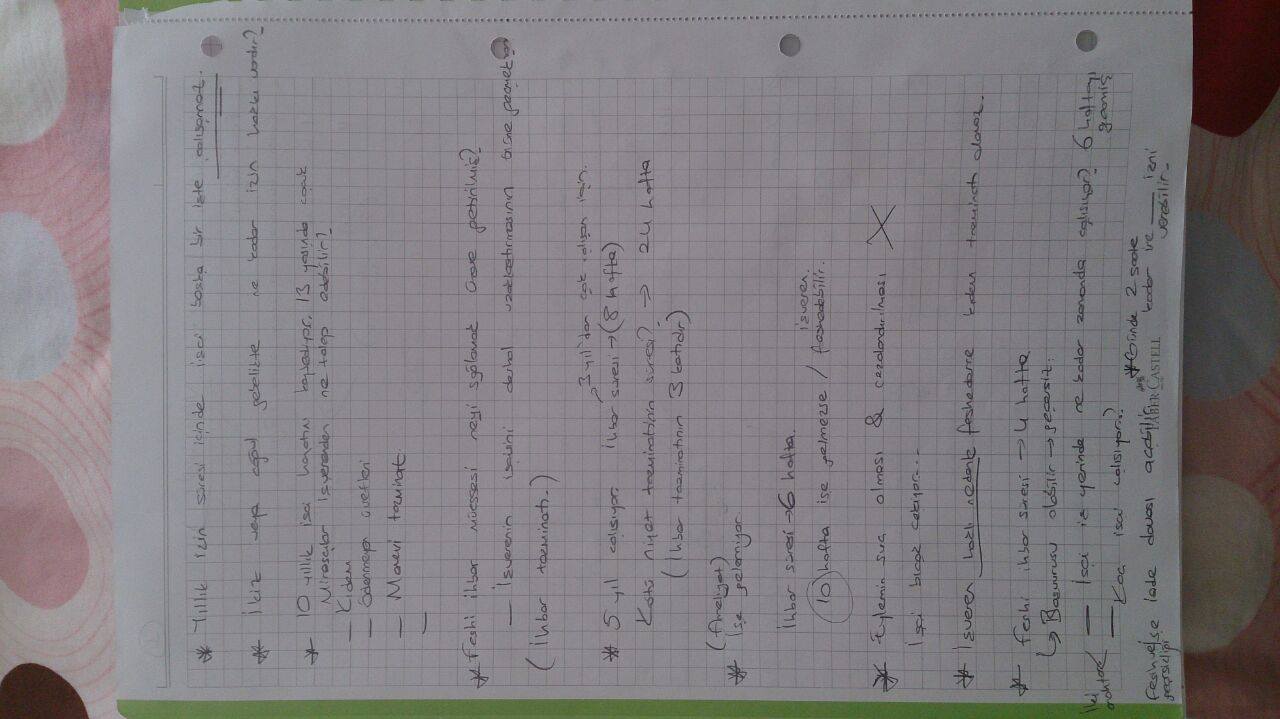 * Yıllık izin süresi içinde işçi başka bir işte çalışamaz.
* İkiz veya çoğul gebelikte ne kadar izin hakkı vardır?
* 10 yıllık işçi hayatını kaybediyor. 13 yaşında çocuk
Mirasçılar işverenden ne talep edebilir?
— Kıdem
— Ödenmeyen ücretleri
— Manevi tazminat
—
* Feshi ihbar müessesi neyi sğlamak üzere getirilmiş?
— İşverenin işçisini derhal uzaklaştırmasının önüne geçmek
(İhbar tazminatı.)
3 yıl'dan çok çalışan için.
* 5 yıl çalışıyor. İhbar süresi → (8 hafta)
Kötü niyet tazminatının süresi? → 24 hafta
(İhbar tazminatının 3 katıdır)
(Ameliyat)
* İşe gelemiyor.
İhbar süresi → 6 hafta.
işveren.
10 hafta işe gelmezse / feshedebilir.
* Eylemin suç olması & cezalandırılması X
İşçi bıçak çekiyor...
* İşveren haklı nedenle feshederse kıdem tazminatı alamaz.
* Feshi ihbar süresi → 4 hafta
↳ Başvurusu olabilir → geçersiz.
İki anahtar — İşçi iş yerinde ne kadar zamanda çalışıyor? 6 haftayı
geçmiş
— Kaç işçi çalışıyor?
* Günde 2 saate
Feshi ve işe iade davası açabilir. kadar iş — izni
geçersizliği verebilir.
FABER-CASTELL